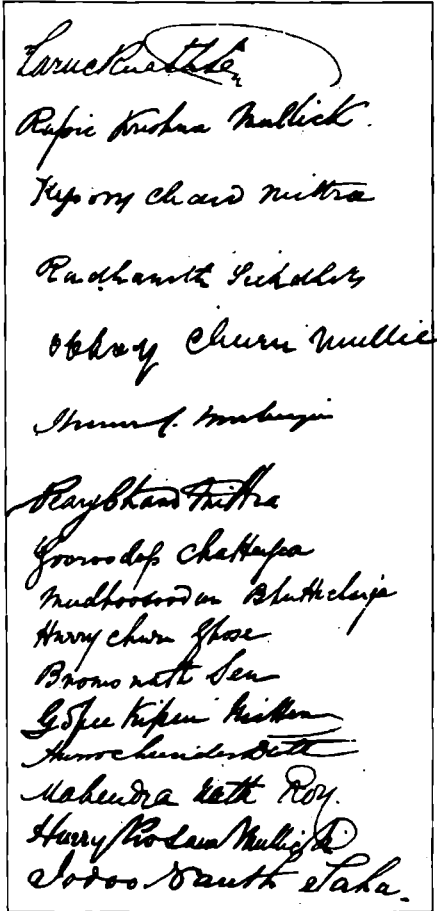 Tarucknath Sen
Russic Krishna Mullick.
Kissory Chand Mittra
Radhanath Sickdhar
Obhoy Churn Mullic
Peary Chand Mittra
Gooroodass Chatterjea
Mudhoosoodun Bhuttacharjea
Hurry Churn Ghose
Bromonath Sen
Gopee Kissen Mitter
Mahendra Nath Roy.
Hurry Prosaud Mullick
Jodoo Nauth Saha.